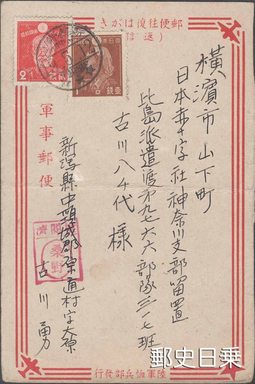 郵便往復はがき
(返信)
横濱市山下町
日本赤十字社神奈川支部留置
比島派遣渡第九七六六部隊三一七班
古川八千代様
軍事郵便
検閲済
新潟縣中頸城郡原通村字大原
古川勇
陸軍恤兵部發行
郵史日乗